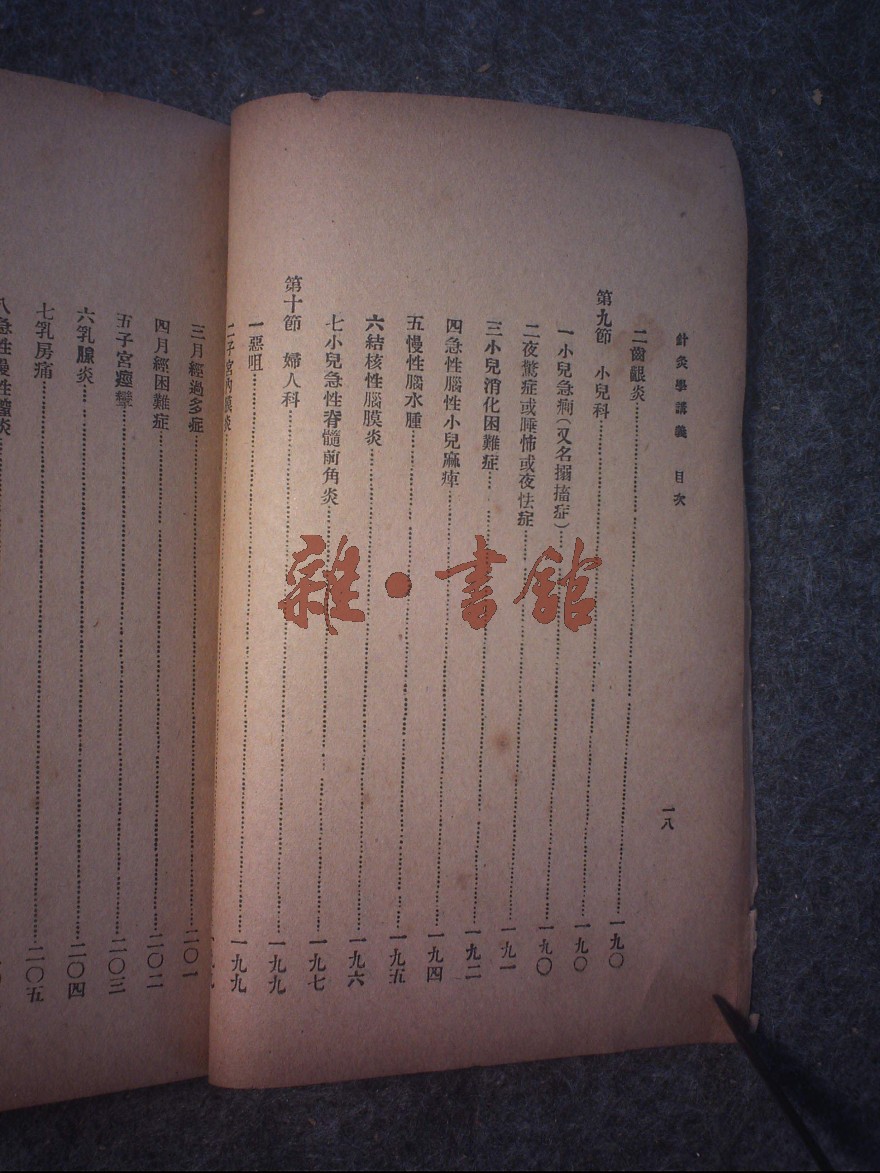 針灸學講義 目次
一八
二齒齦炎……一九〇
第九節 小兒科……一九〇
一小兒急癇(又名搐搦症)……一九〇
二夜驚症或睡怖或夜怯症……一九一
三小兒消化困難症……一九二
四急性腦性小兒麻痺……一九四
五慢性腦水腫……一九五
六結核性腦膜炎……一九六
七小兒急性脊髓前角炎……一九七
第十節 婦人科……一九九
一惡咀……一九九
二子宮內膜炎……一九九
三月經過多症……二〇一
四月經困難症……二〇二
五子宮痙攣……二〇三
六乳腺炎……二〇四
七乳房痛……二〇五
八急性慢性膣炎
雜·書館